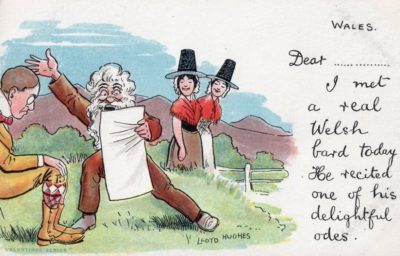 WALES.
Dear ............
I met
a real
Welsh
bard today
He recited
one of his
delightful
odes.
LLOYD HUGHES
VALENTINES SERIES